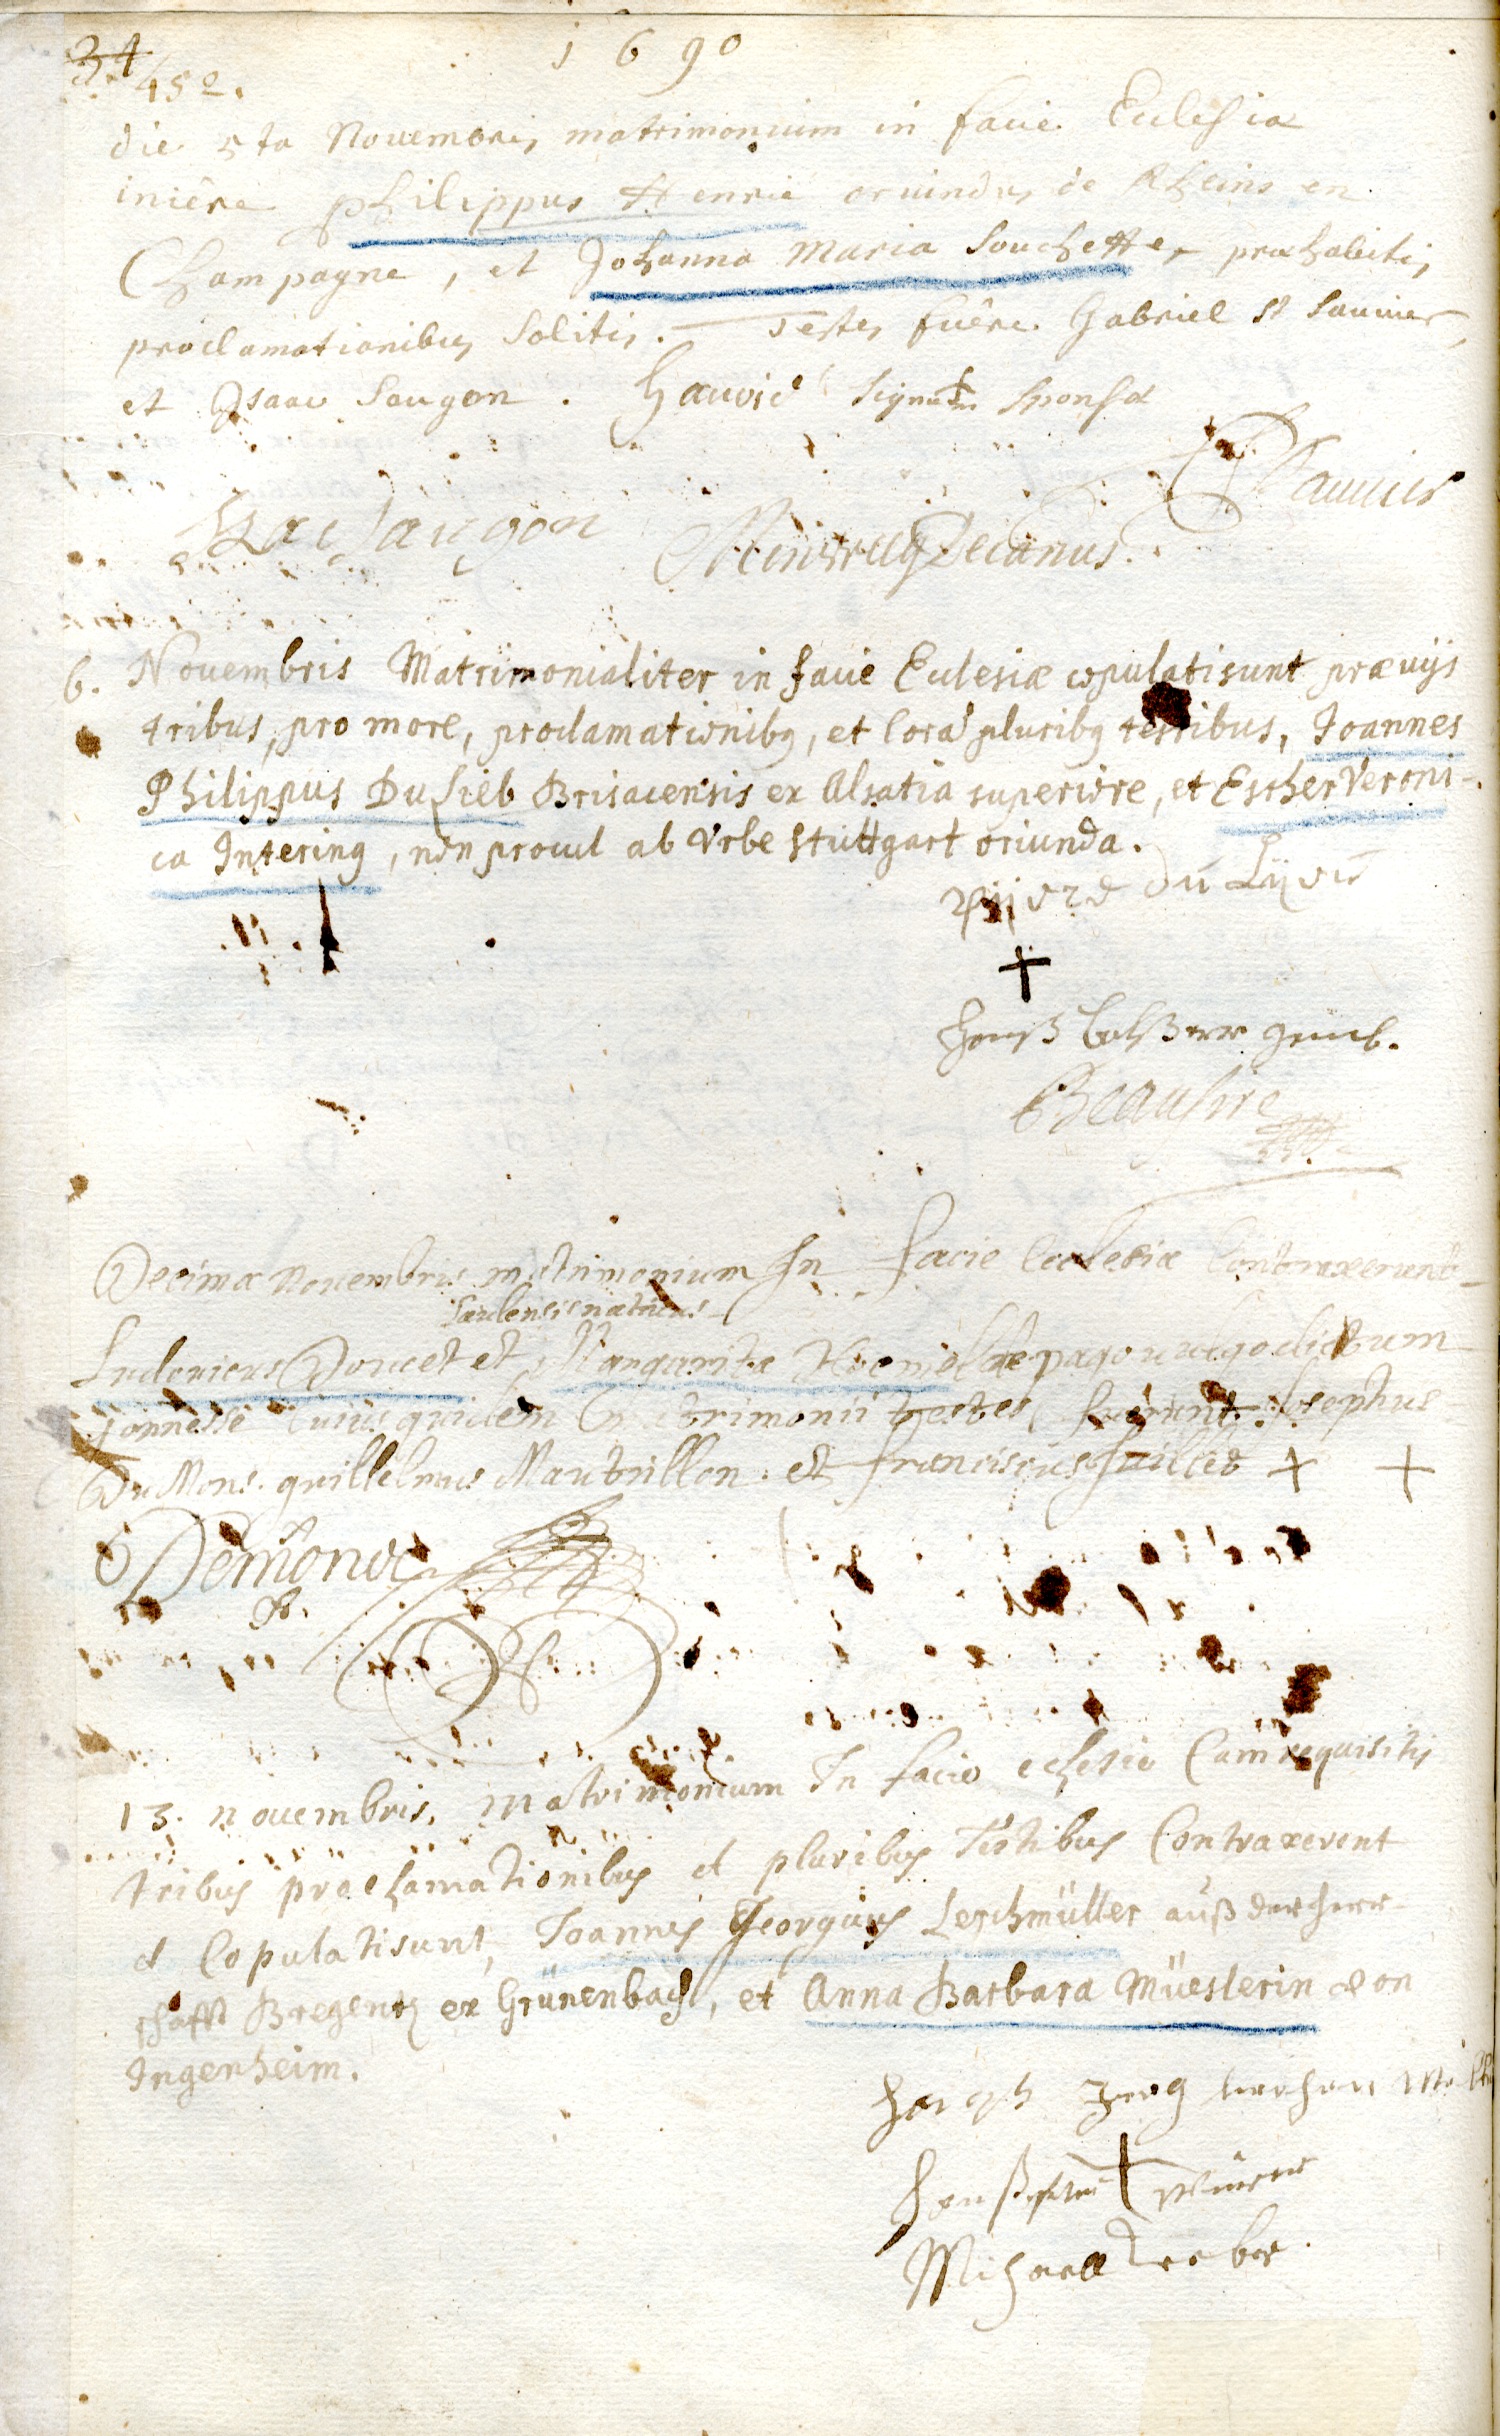 1690
34
452.
die 5ta Novembris matrimonium in facie Ecclesiæ
iniêre philippus Henrié oriundus de Rheins en
Champagne, et Johanna Maria Souchette, præhabitis
proclamationibus solitis. testes fuêre Gabriel St Saunier,
et Isaac Saugon. Hauvié signum sponsæ
Saunier
Isac Saugon Decanus.
6. Novembris Matrimonialiter in facie Ecclesiæ copulati sunt præviis
tribus, pro more, proclamationibq, et Corā pluribq testibus, Joannes
Philippus Du Lieb Brisacensis ex Alsatia superiore, et Esther Veroni-
ca Intering, non procul ab Urbe Stuttgart oriunda.
du
+
Beausire
Decima Novembris matrimonium In facie Ecclesiæ Contraxerunt
natiuus
Ludovicus Doucet et Margarita de pago vulgo dictum
Jonnesse Cuius quidem Matrimonii testes fuerunt Josephus
Du Mons. guillelmus Mautrillon et franciscus + +
Demonde
13. novembris. matrimonium In facie eclesie Cum requisitis
tribus proclamationibus et pluribus Testibus Contraxerent
et Copulati sunt, Joannes Georgius Lerchmüller auß der herr-
schafft Bregentz ex Grünenbach, et Anna Barbara Müeslerin von
Ingenheim.
Jerg
+
Michaell